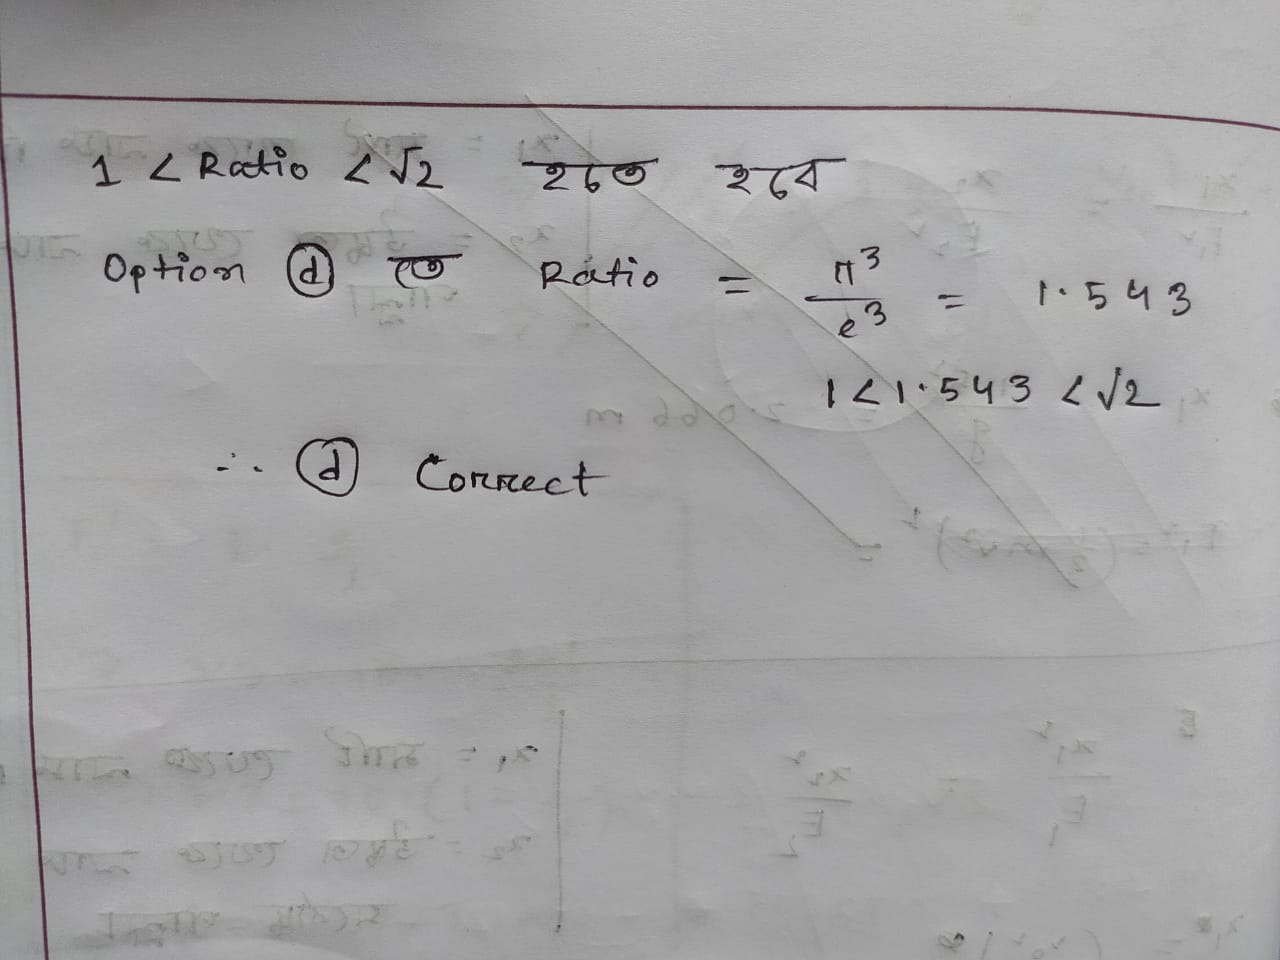 1 < Ratio < √2 হতে হবে
Option ⓓ তে Ratio = π³/e³ = 1.543
1 < 1.543 < √2
∴ ⓓ Correct